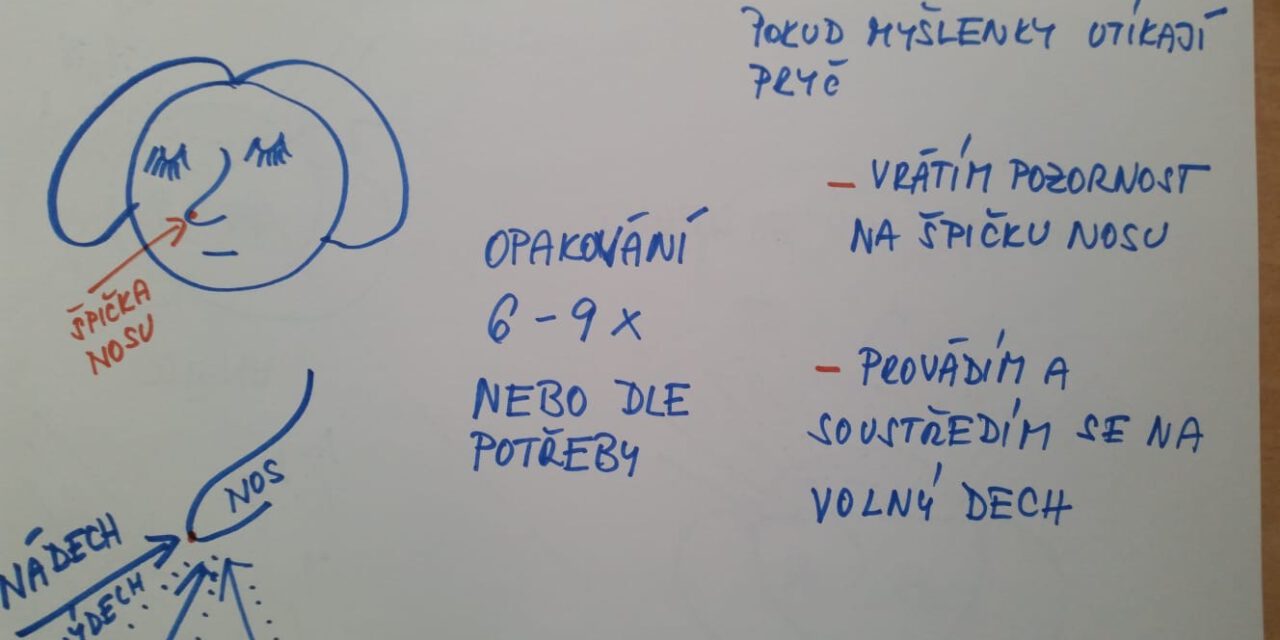 POKUD MYŠLENKY UTÍKAJÍ
PRYČ
- VRÁTÍM POZORNOST
NA ŠPIČKU NOSU
- PROVÁDÍM A
SOUSTŘEDÍM SE NA
VOLNÝ DECH
OPAKOVÁNÍ
6-9 x
NEBO DLE
POTŘEBY
ŠPIČKA
NOSU
NOS
NÁDECH
ÝDECH